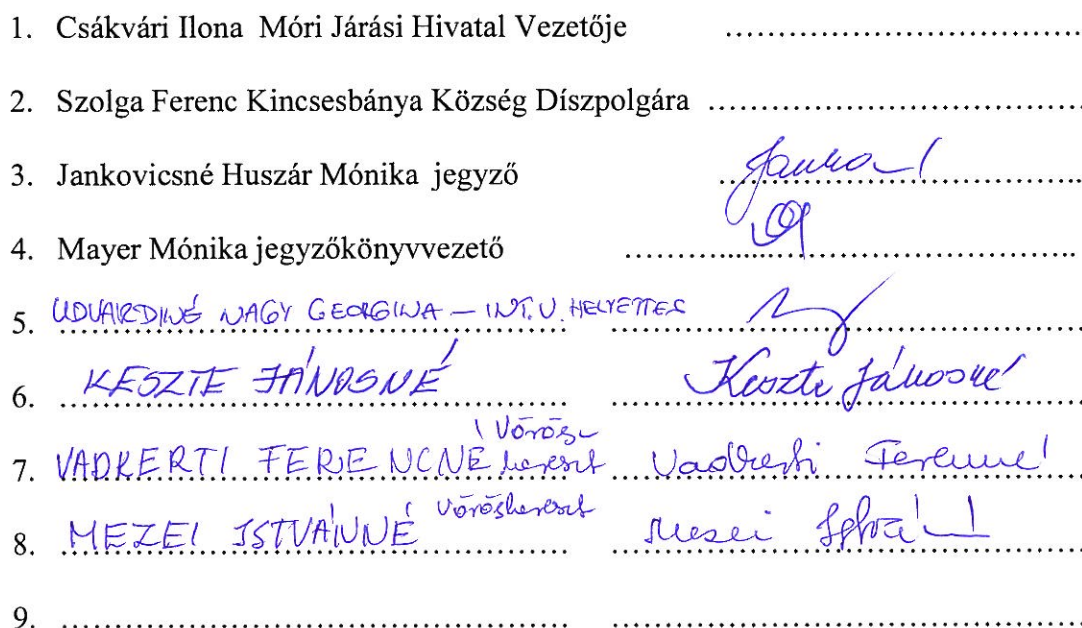 1. Csákvári Ilona Móri Járási Hivatal Vezetője ..............................
2. Szolga Ferenc Kincsesbánya Község Díszpolgára ..............................
3. Jankovicsné Huszár Mónika jegyző ..............................
4. Mayer Mónika jegyzőkönyvvezető ..............................
5. UDVARDINÉ NAGY GEORGINA – INT.V. HELYETTES
6. KESZTE JÁNOSNÉ Keszte Jánosné
7. VADKERTI FERENCNÉ Vöröskereszt Vadkerti Ferencné
8. MEZEI ISTVÁNNÉ Vöröskereszt Mezei Istvánné
9. .............................. ..............................